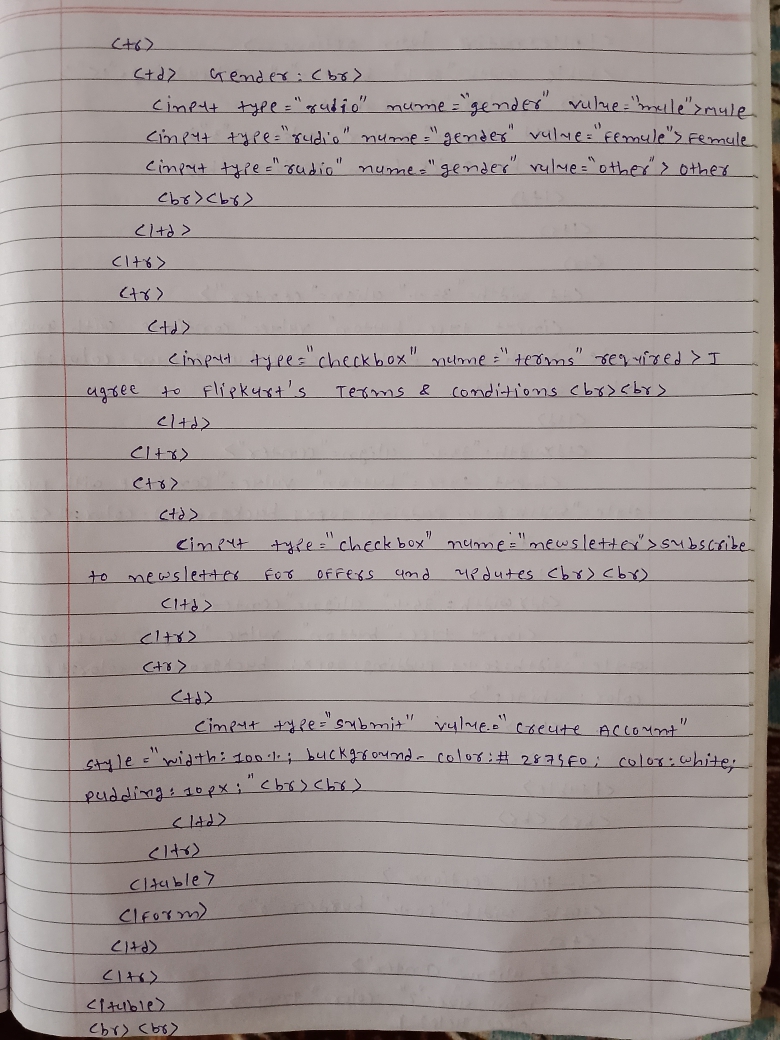 <tr>
<td> Gender: 
<input type="radio" name="gender" value="male">male
<input type="radio" name="gender" value="female">Female
<input type="radio" name="gender" value="other"> other
<br><br>
</td>
</tr>
<tr>
<td>
<input type="checkbox" name="terms" required> I
agree to Flipkart's Terms & conditions <br><br>
</td>
</tr>
<tr>
<td>
<input type="checkbox" name="newsletter">subscribe
to newsletter for offers and updates <br><br>
</td>
</tr>
<tr>
<td>
<input type="submit" value="Create Account"
style="width:100%; background-color:#2875F0; color:white;
padding:10px;"<br><br>
</td>
</tr>
</table>
</form>
</td>
</tr>
</table>
<br><br>